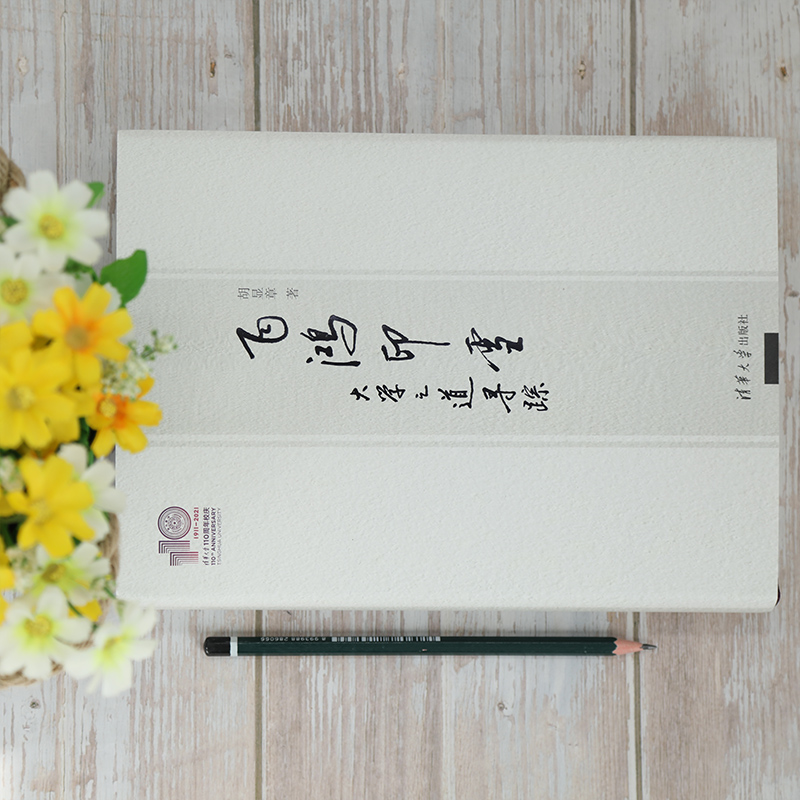 胡显章 著
飞鸿印雪
大学之道寻踪
清华大学出版社
110
1911-2021
清华大学 110周年校庆
110TH ANNIVERSARY
TSINGHUA UNIVERSITY